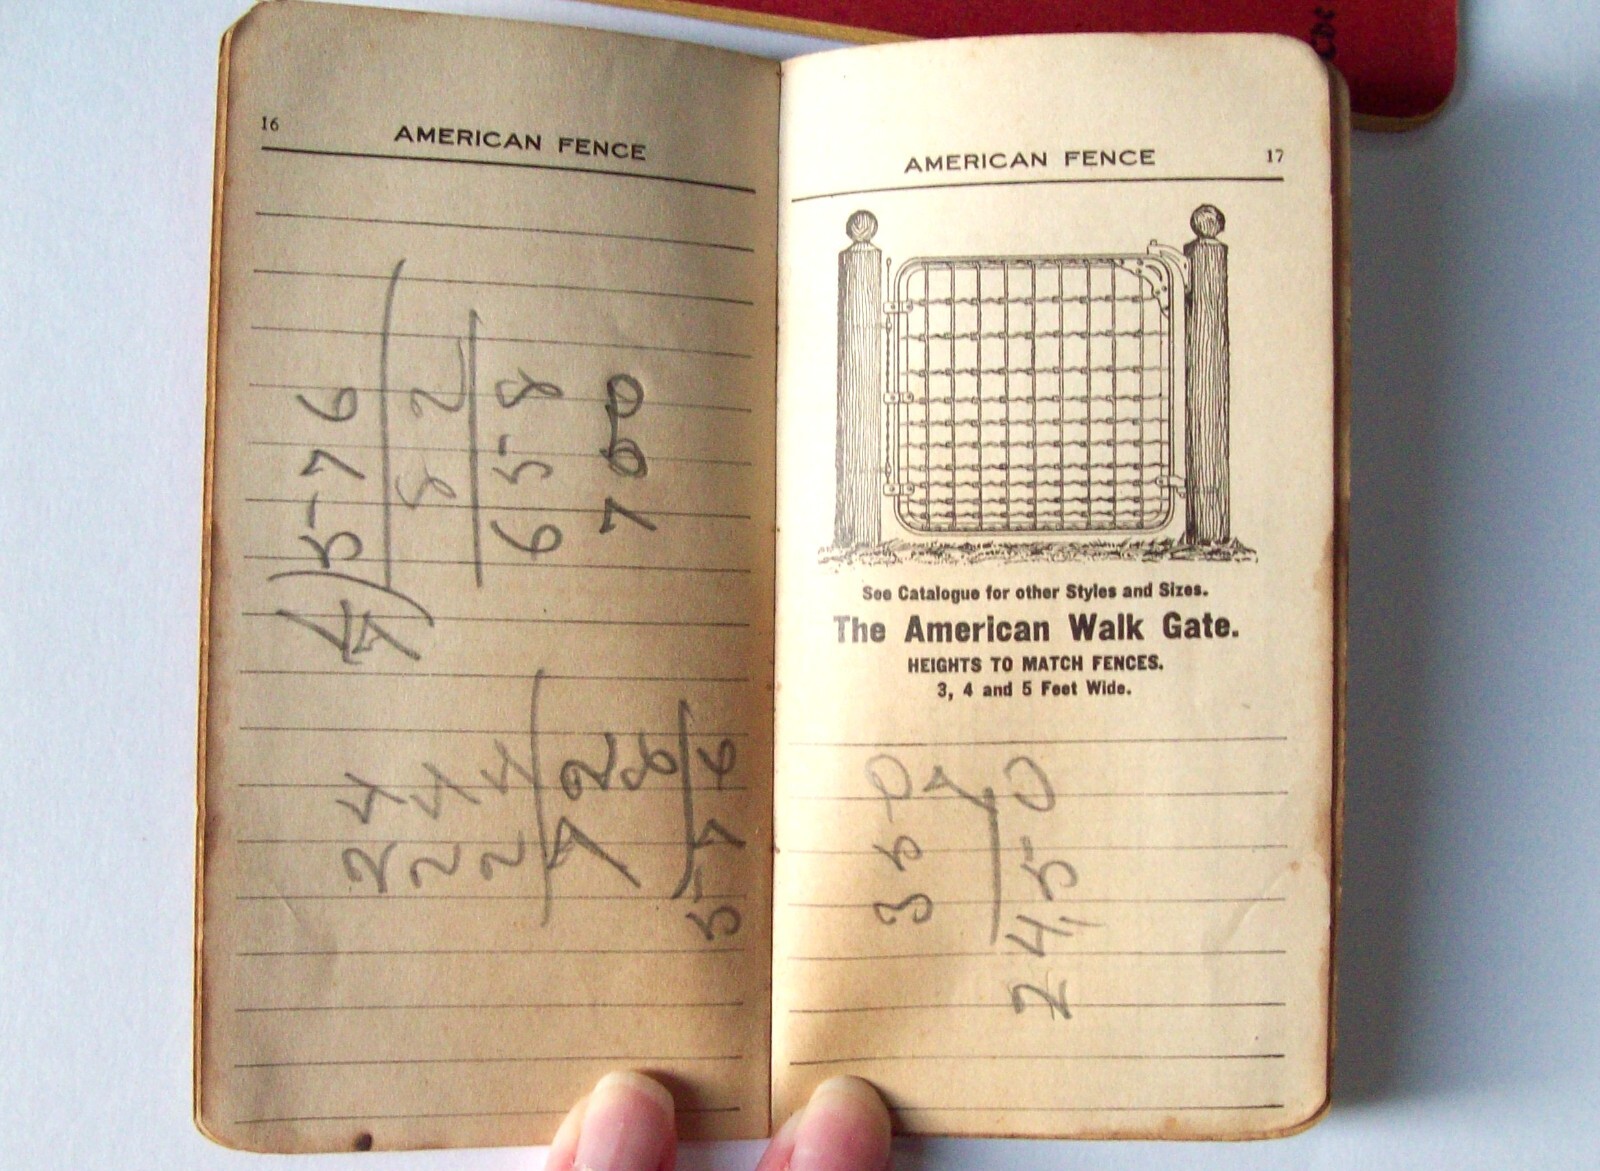 16
AMERICAN FENCE
7)576
82
658
700
24
24
24
72
8
576
AMERICAN FENCE
17
See Catalogue for other Styles and Sizes.
The American Walk Gate.
HEIGHTS TO MATCH FENCES.
3, 4 and 5 Feet Wide.
350
7
2450